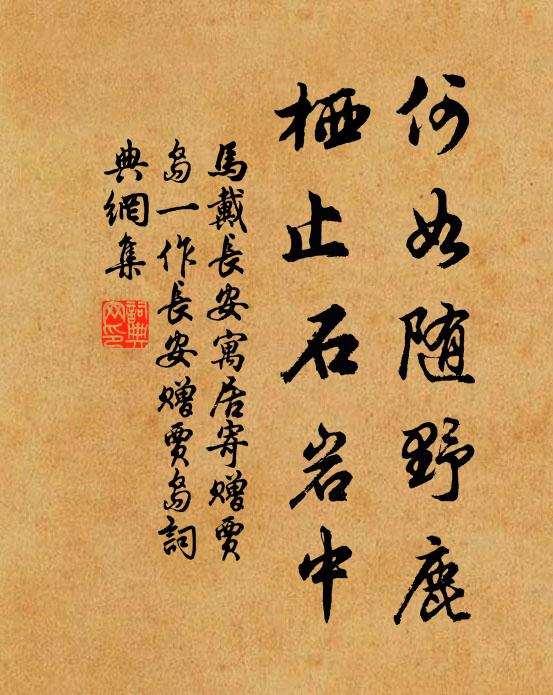 何如随野鹿
栖止石岩中
馬戴長安寓居寄贈賈
島一作長安贈賈島詞
典網集
詞典
网印